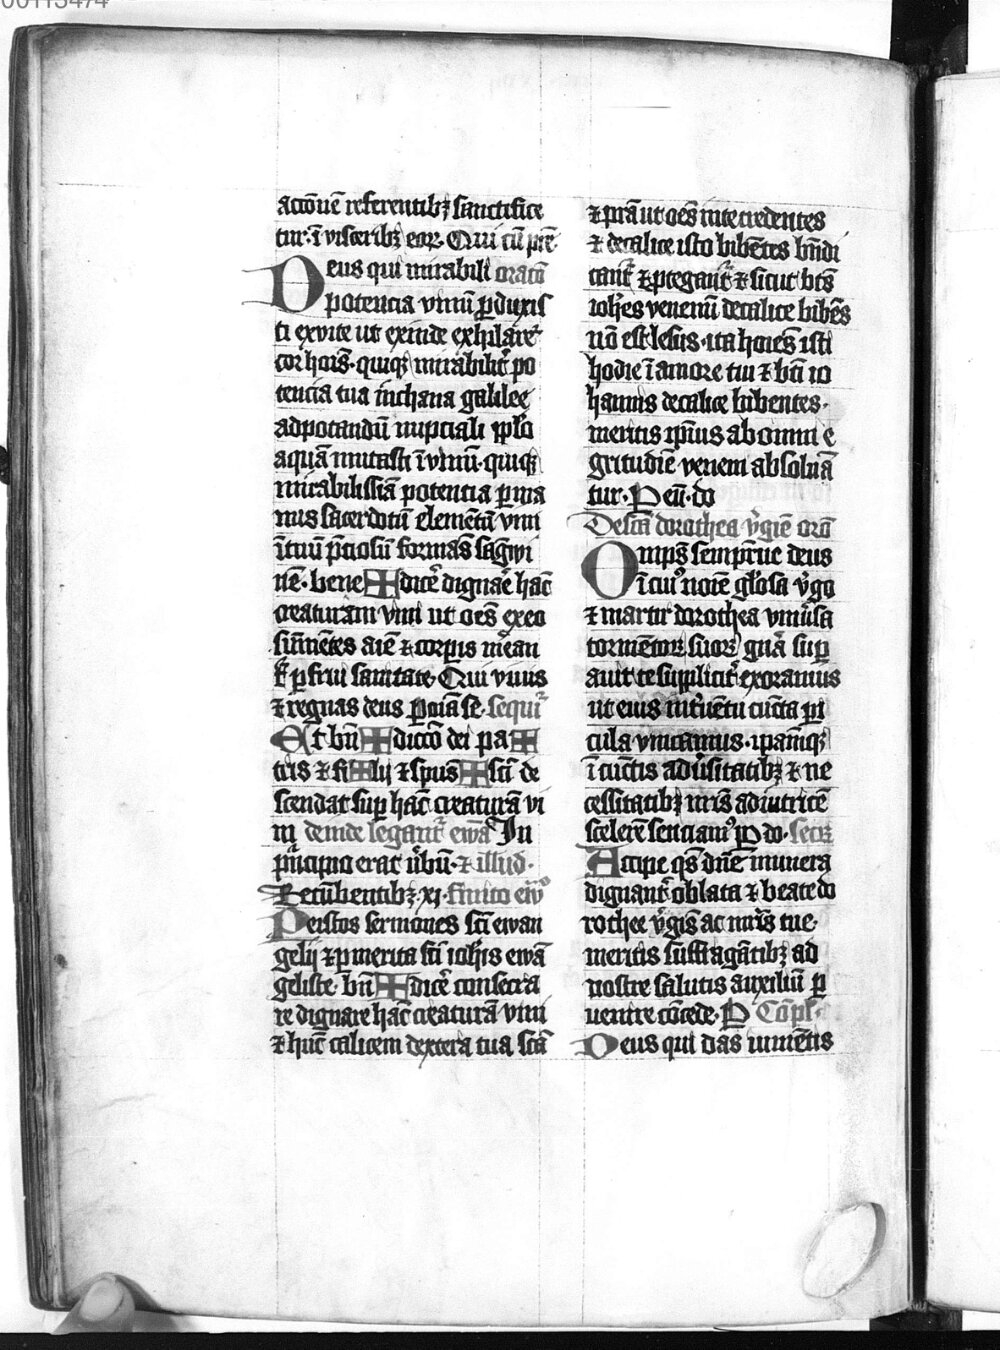 00113474
actōuē referentibꝫ sanctifice
tur · ī viscerib eoꝝ · Qui cū prē
Deus qui mirabili oratō
potencia vinū ꝑduxis
ti ex vite ut exinde exhilaret
cor hoīs · quiqꝫ mirabilit᷑ po
tencia tua in chana galilee
ad potandū nupciali pplō
aquā mutasti ī vinū · quiqꝫ
mirabilissiā potencia ꝑ ma
nus sacerdotū elemētū vini
ī tuū p̄ciosū formas sāgwi
nē · bene ✠ dicē dignaē hāc
creaturam vini ut oēs ex eo
sūmētes aīe ⁊ corpis
ꝑfrui sanitate · Qui viuis
⁊ regnas deus ꝑ oīa se · sequi᷑
Et bn̄ ✠ dictō dei pa ✠
tris ⁊ fi ✠ lij ⁊ spūs ✠ scī de
scendat sup hāc creaturā vi
ni deinde legant᷑ ewā In
principio erat v̄bū · ⁊ illud ·
Recūbentibꝫ · xi · finito ew̄o
Per istos sermones scī ewan
gelij ⁊ ꝑ merita scī ioh̄is ewā
geliste · bn̄ ✠ dicē consecra
re dignare hāc creaturā vini
⁊ hūc calicem dextera tua scā
⁊ pr̄a ut oēs in te credentes
⁊ de calice isto bibētes bn̄di
cant᷑ ⁊ ptegant᷑ ⁊ sicut bt̄s
ioh̄es venenū de calice bibēs
nō est lesus · ita hoīes isti
hodie ī amore tui ⁊ bt̄i io
hannis de calice bibentes ·
meritis ipīus ab omni e
gritudīe veneni absoluā
tur · P eū · do
De scā dorothea v̄gīe orō
Omps̄ sempit̄ne deus
ī cui᷒ noīe gl̄osa v̄go
⁊ martir dorothea vniūsa
tormētoꝝ suoꝝ gn̄a sup
auit te supplicit᷑ exoramus
ut eius int̄uētu cūcta pi
cula vincamus · ipamqꝫ
ī cūctis adūsitatibꝫ ⁊ ne
cessitatibꝫ nr̄is adiutricē
scelerē senciam᷒ P do · Secr̄
Accipe qs̄ dn̄e munera
dignant᷑ oblata ⁊ beate do
rothee v̄gīs ac mr̄is tue ·
meritis suffragātibꝫ ad
nostre salutis auxiliū ꝑ
uenire cōcede · P Cōpl ·
Deus qui das iumētis